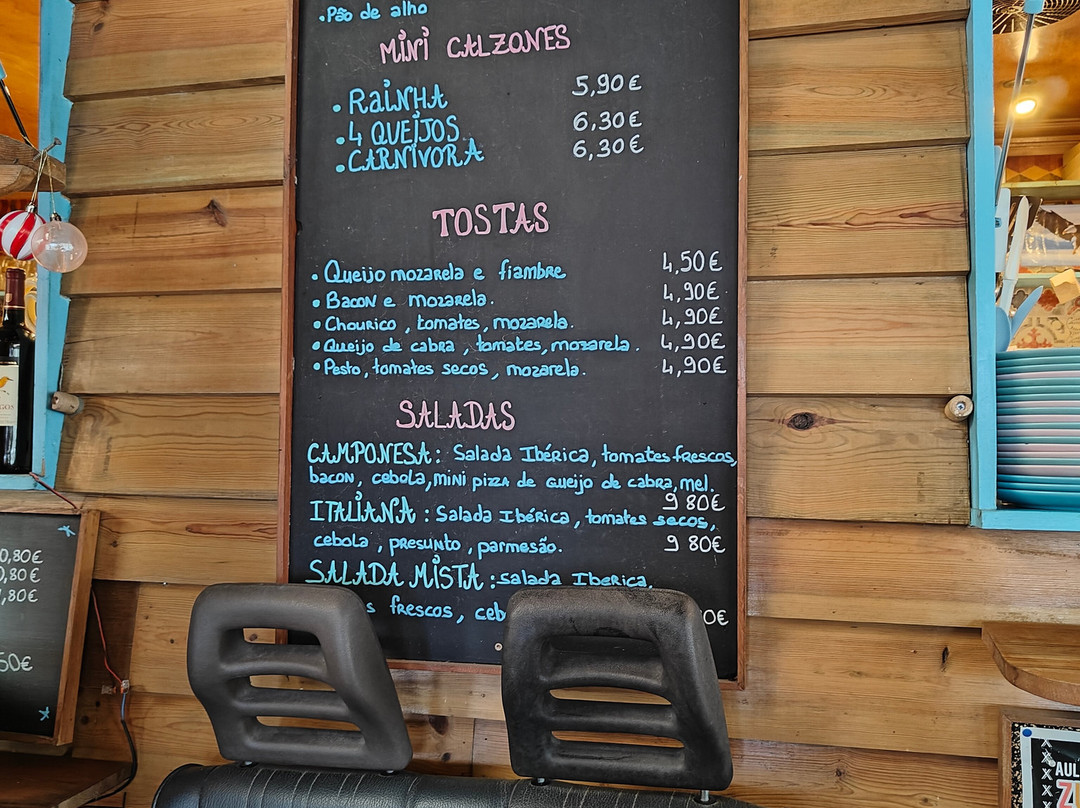 .Pão de alho
MINI CALZONES
.RAINHA 5,90€
.4 QUEIJOS 6,30€
.CARNIVORA 6,30€
TOSTAS
.Queijo mozarela e fiambre 4,50€
.Bacon e mozarela. 4,90€
.Chourico, tomates, mozarela. 4,90€
.Queijo de cabra, tomates, mozarela. 4,90€
.Pesto, tomates secos, mozarela. 4,90€
SALADAS
CAMPONESA: Salada Ibérica, tomates frescos,
bacon, cebola, mini pizza de queijo de cabra, mel.
9 80€
ITALIANA: Salada Ibérica, tomates secos,
cebola, presunto, parmesão. 9 80€
SALADA MISTA: salada Iberica,
frescos,
0,80€
0,80€
,80€
50€
AUL